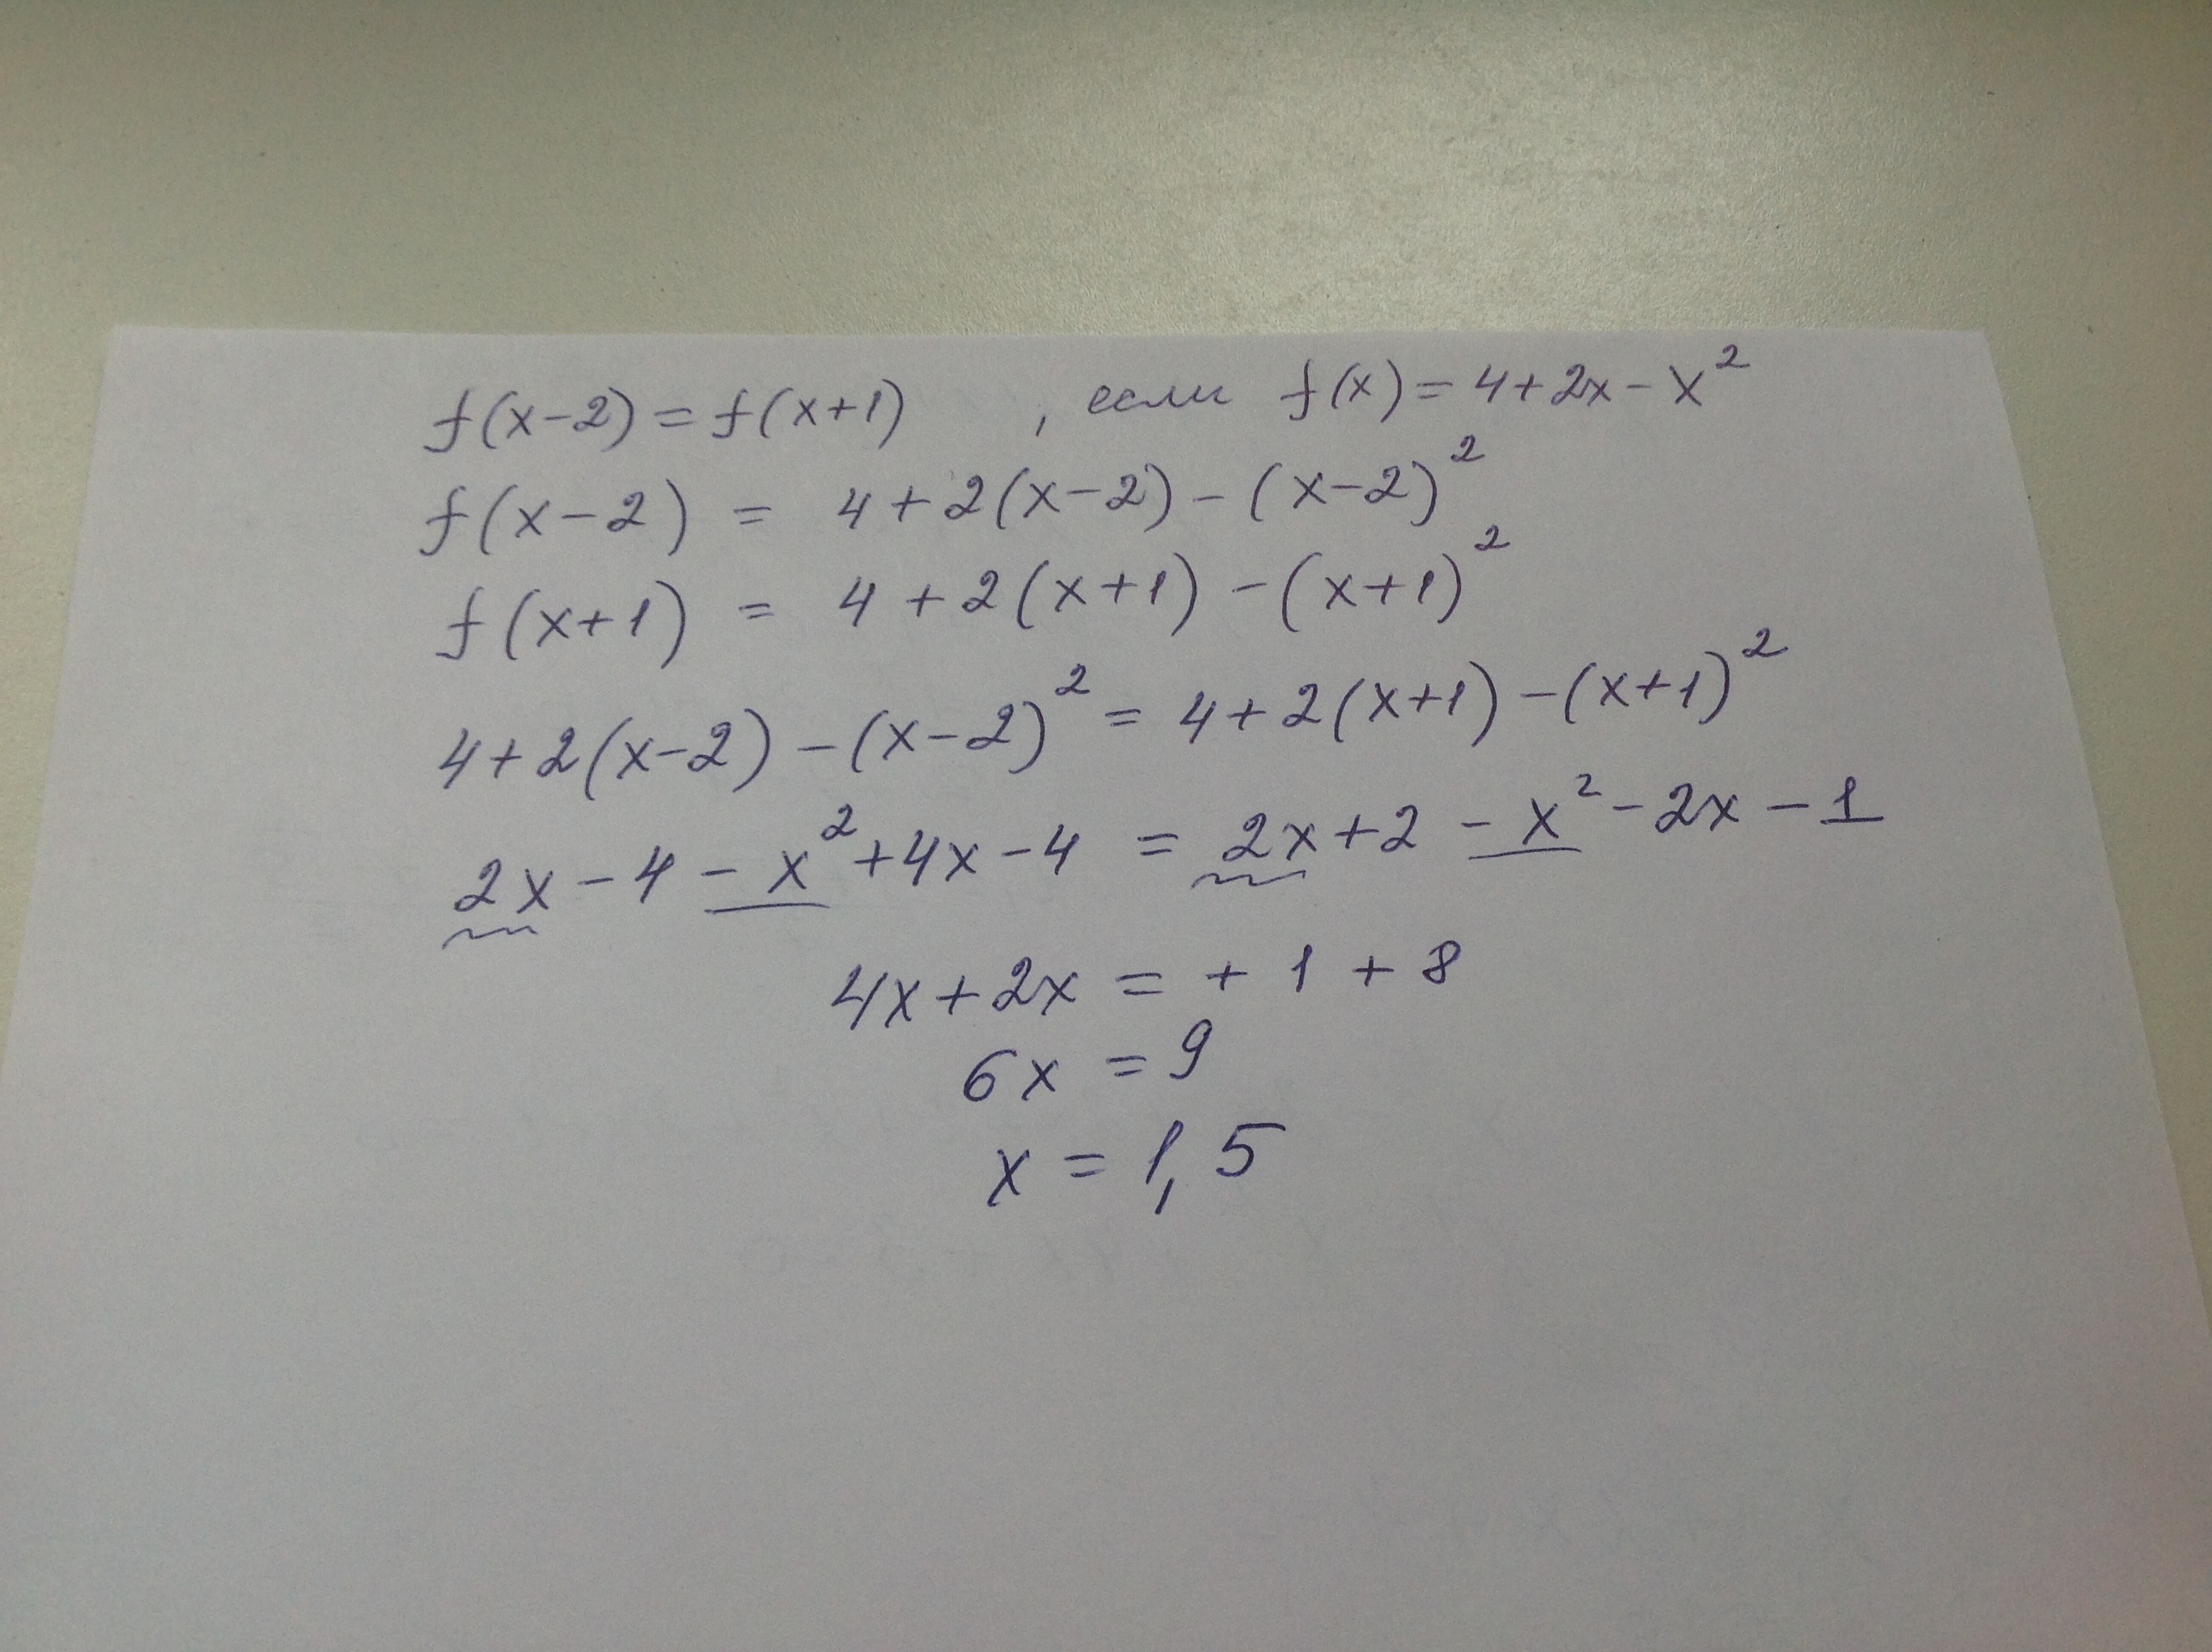 f(x-2) = f(x+1) , если f(x) = 4+2x-x²
f(x-2) = 4+2(x-2)-(x-2)²
f(x+1) = 4+2(x+1)-(x+1)²
4+2(x-2)-(x-2)² = 4+2(x+1)-(x+1)²
2x-4-x²+4x-4 = 2x+2-x²-2x-1
4x+2x = +1+8
6x = 9
x = 1,5